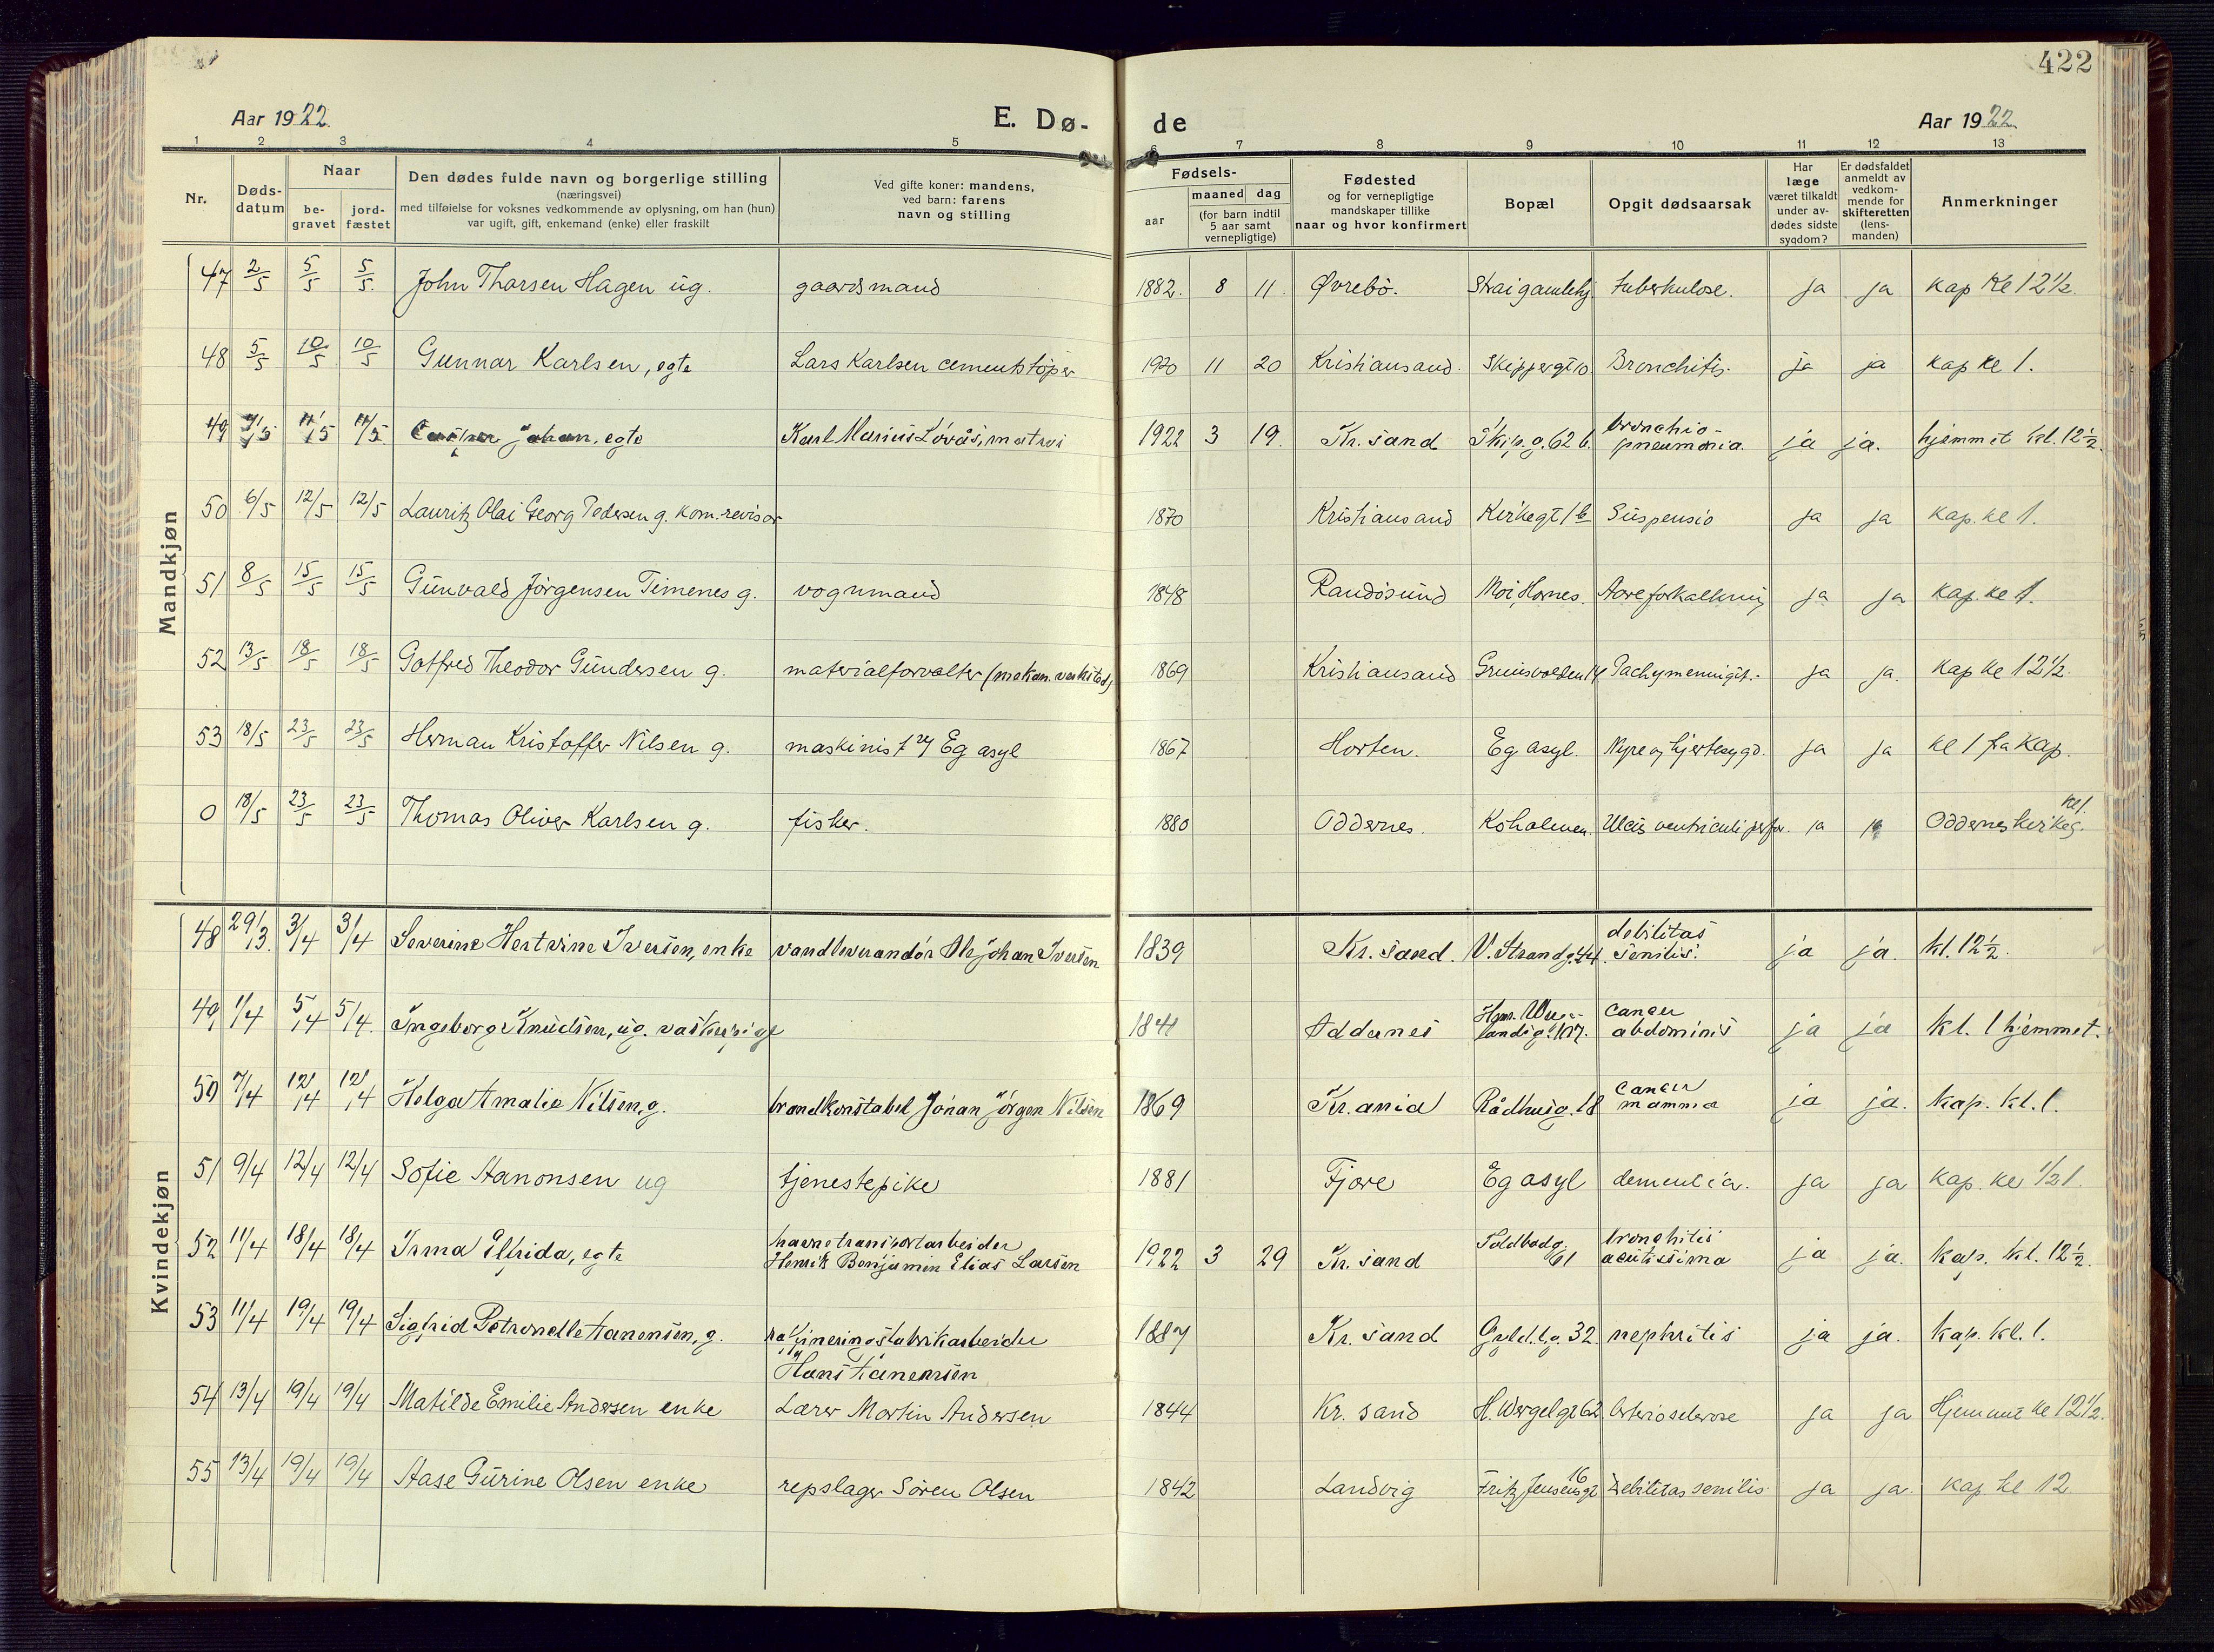 422
Aar 1922. E. Dø- de Aar 1922.
1 2 3 4 5 6 7 8 9 10 11 12 13
Nr.
Døds-
datum
Naar
be-
gravet
jord-
fæstet
Den dødes fulde navn og borgerlige stilling
(næringsvei)
med tilføielse for voksnes vedkommende av oplysning, om han (hun)
var ugift, gift, enkemand (enke) eller fraskilt
Ved gifte koner: mandens,
ved barn: farens
navn og stilling
Fødsels-
aar
maaned dag
(for barn indtil
5 aar samt
vernepligtige)
Fødested
og for vernepligtige
mandskaper tillike
naar og hvor konfirmert
Bopæl
Opgit dødsaarsak
Har
læge
været tilkaldt
under av-
dødes sidste
sygdom?
Er dødsfaldet
anmeldt av
vedkom-
mende for
skifteretten
(lens-
manden)
Anmerkninger
Mandkjøn
47 2/5 5/5 5/5. John Tharsen Hagen ug. gaardsmand 1882. 8 11. Øvrebö. Strai gamlehj tuberkulose. ja ja kap kl 12 1/2.
48 5/5 10/5 10/5 Gunnar Karlsen, egte Lars Karlsen cementstöper 1920 11 20 Kristiansand. Skippergt 10. Bronchitis. ja ja kap kl 1.
49 11/5 11/5 Johan, egte Karl Marius Lövås, matros 1922 3 19. Kr. sand Skip.g. 62 b. bronchio-
pneumonia. ja ja. hjemmet kl. 12 1/2.
50 6/5 12/5 12/5 Lauritz Olai Georg Pedersen g. kom. revisor 1870 Kristiansand Kirkegt 1 b Suspensio ja ja kap. kl 1.
51 8/5 15/5 15/5 Gunvald Jörgensen Timenes g. vognmand 1848 Randösund Moi, Hornes. Aareforkalkning ja ja kap. kl 1.
52 13/5 18/5 18/5 Gotfred Theodor Gundersen g. materialforvalter (mekan. verksted) 1869 Kristiansand Grimsvolden 14 Pachymeningit. ja ja. kap kl 12 1/2.
53 18/5 23/5 23/5 Herman Kristoffer Nilsen g. maskinist v/ Eg asyl 1867 Horten. Eg asyl. Nyre og hjertesygd. ja ja kl 1 fra kap.
0 18/5 23/5 23/5 Thomas Oliver Karlsen g. fisker. 1880 Oddernes. Koholmen. Ulcus ventriculi perfor. ja ja Oddernes kirkeg. kl 1.
Kvindekjøn
48 29/3. 3/4 3/4 Severine Hertvine Iversen, enke vandleverandör Ole Johan Iversen 1839 Kr. sand. V. Strandg. 44 debilitas
senilis. ja ja. kl. 12 1/2.
49 1/4 5/4 5/4. Ingeborg Knudsen, ug. vaskepige 1841 Oddernes Hpr. Wer-
landsg. canser
abdominis ja ja kl. 1 hjemmet.
50 7/4 12/4 12/4 Helga Amalie Nilsen, g. brandkonstabel Johan Jörgen Nilsen 1869 Kr.ania Rådhusg. 18 canser
mamma ja ja. kap. kl. 1.
51 9/4 12/4 12/4 Sofie Aanonsen ug tjenestepike 1881 Fjære Eg asyl dementia. ja ja kap. kl 1/2 1.
52 11/4 18/4 18/4 Irma Elfrida, egte havnetransportarbeider
Henrik Benjamin Elias Larsen 1922 3 29 Kr. sand Toldbodg.
61 bronchitis
acutissima ja ja. kap. kl. 12 1/2.
53 11/4 19/4 19/4 Sigfrid Petronelle Aanensen, g. raffineringsfabrikarbeider
Hans Aanensen 1887 Kr. sand Gyld.l.g. 32 nephritis ja ja. kap. kl. 1.
54 13/4 19/4 19/4 Matilde Emilie Andersen enke Lærer Martin Andersen 1844 Kr. sand H. Wergelgt 62 Arteriosclerose ja ja Hjemmet kl 12 1/2.
55 13/4 19/4 19/4 Aase Gurine Olsen enke repslager Sören Olsen 1842 Landvig Fritz Jensensgt 16 Debilitas senilis ja ja. kap kl 12